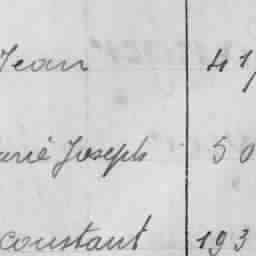 Jean 41
Joseph 50
constant 193